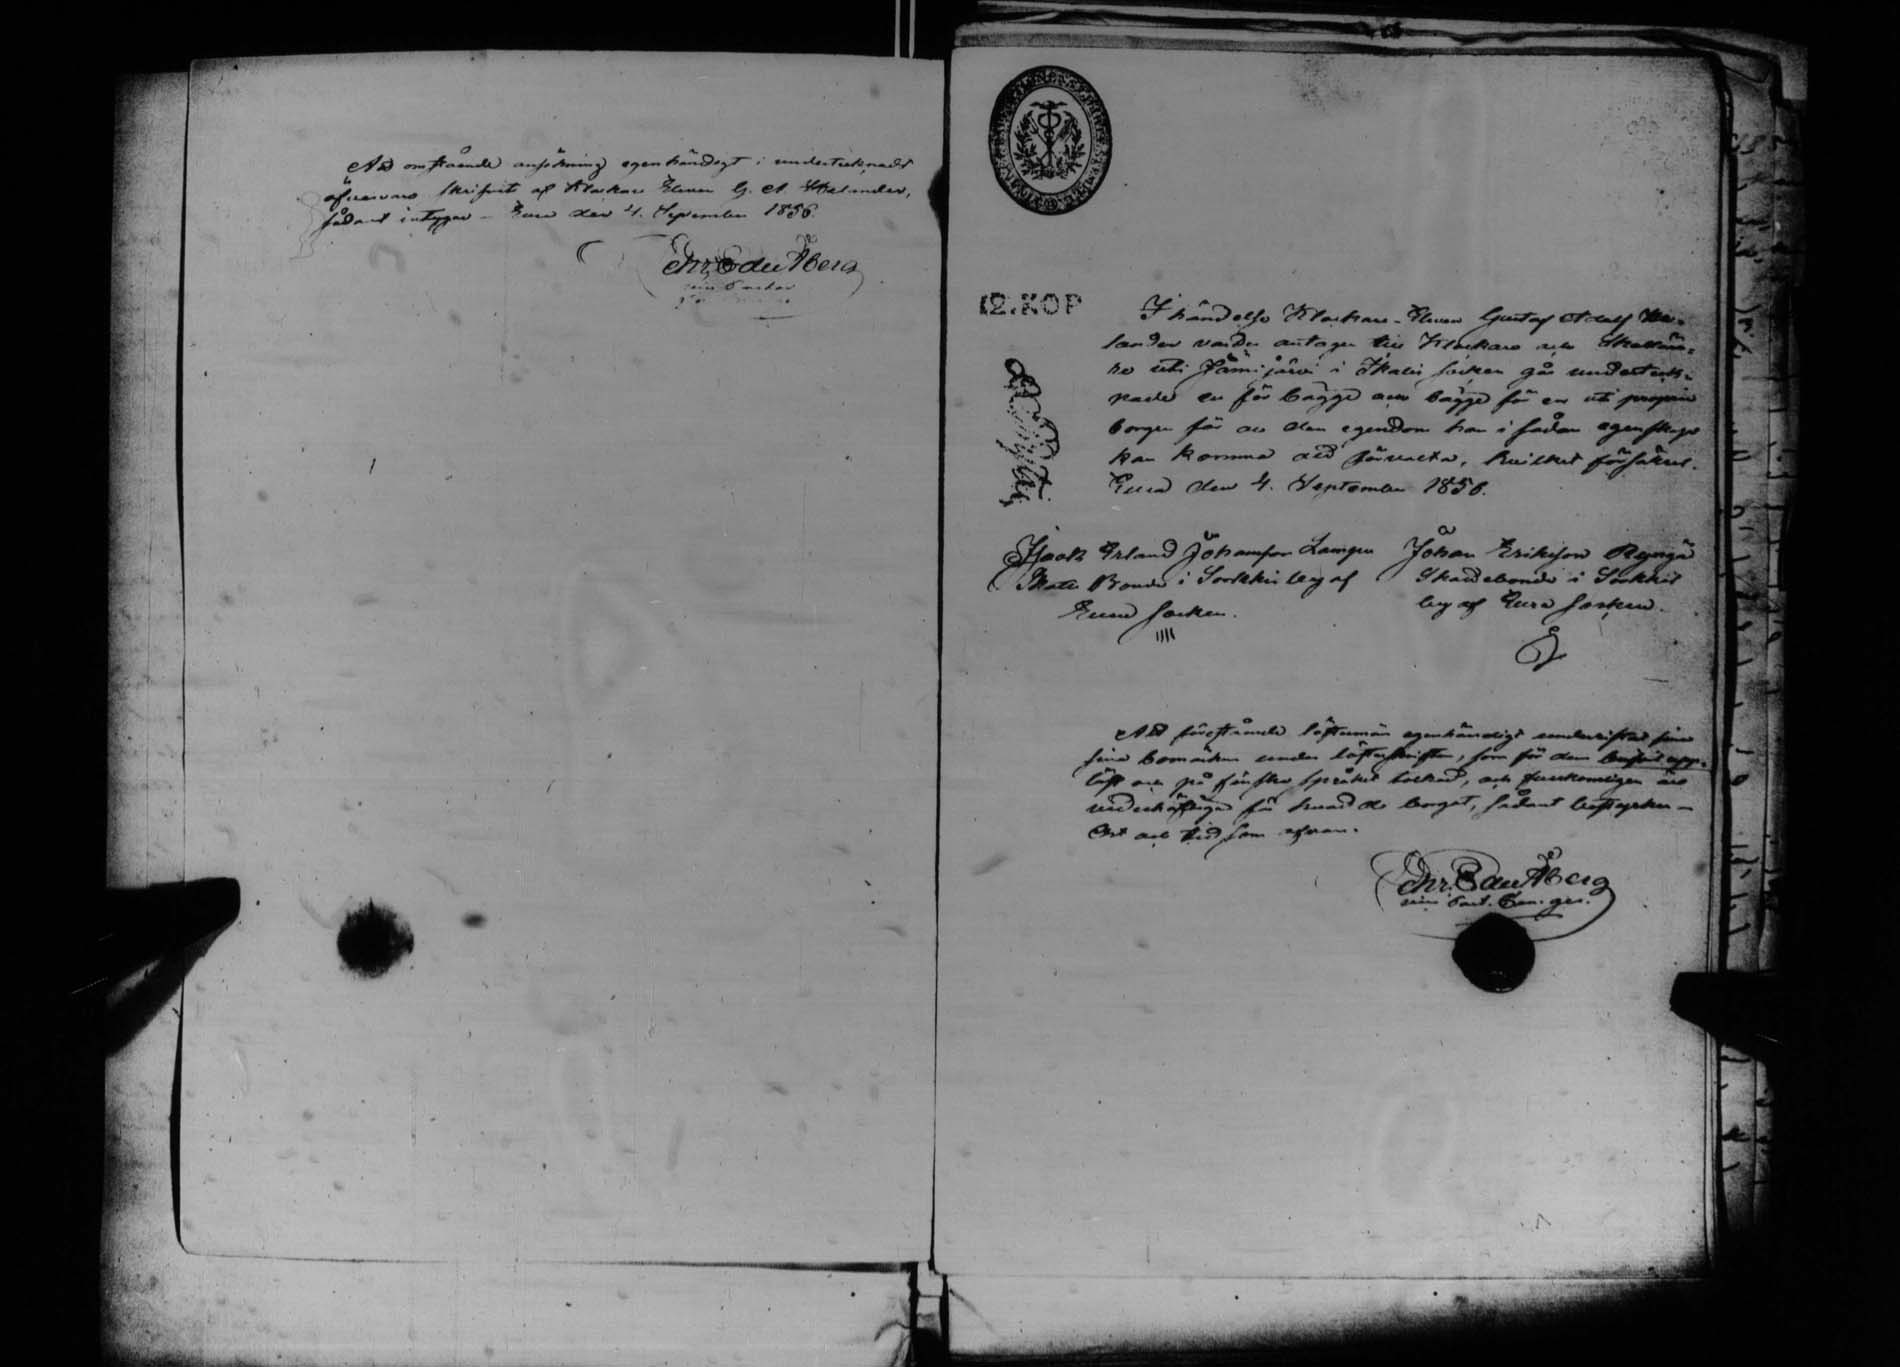 Att omstående ansökning egenhändigt i undertecknads
öfvervaro skrifvit af Klockare Eleven G. A. Helander,
sådant intygar – Eura den 4. September 1856.
Chr. Edu Åberg
12. KOP
I händelse Klockare-Eleven Gustaf Adolf He-
lander varder antagen till Klockare och Skollära-
re uti Jämijärvi i Ikalis socken gå underteck-
nade en för bägge och bägge för en uti proprie
borgen för all den egendom han i sådan egenskap
kan komma att förvalta, hvilket försäkras.
Eura den 4. September 1856.
Isaak Erland Johansson
Skatte Bonde i Sorkkis by af
Eura socken.
Johan Eriksson
Skattebonde i Sorkkis
by af Eura socken.
Att förestående löftesmän egenhändigt underritat sina
sina bomärken under löftesskriften, som för dem blifvit upp-
läst och på finska språket tolkad, och fullkomligen äro
vederhäftiga för hvad de borgat, sådant bestyrker –
Ort och tid som ofvan.
Chr. Edu Åberg